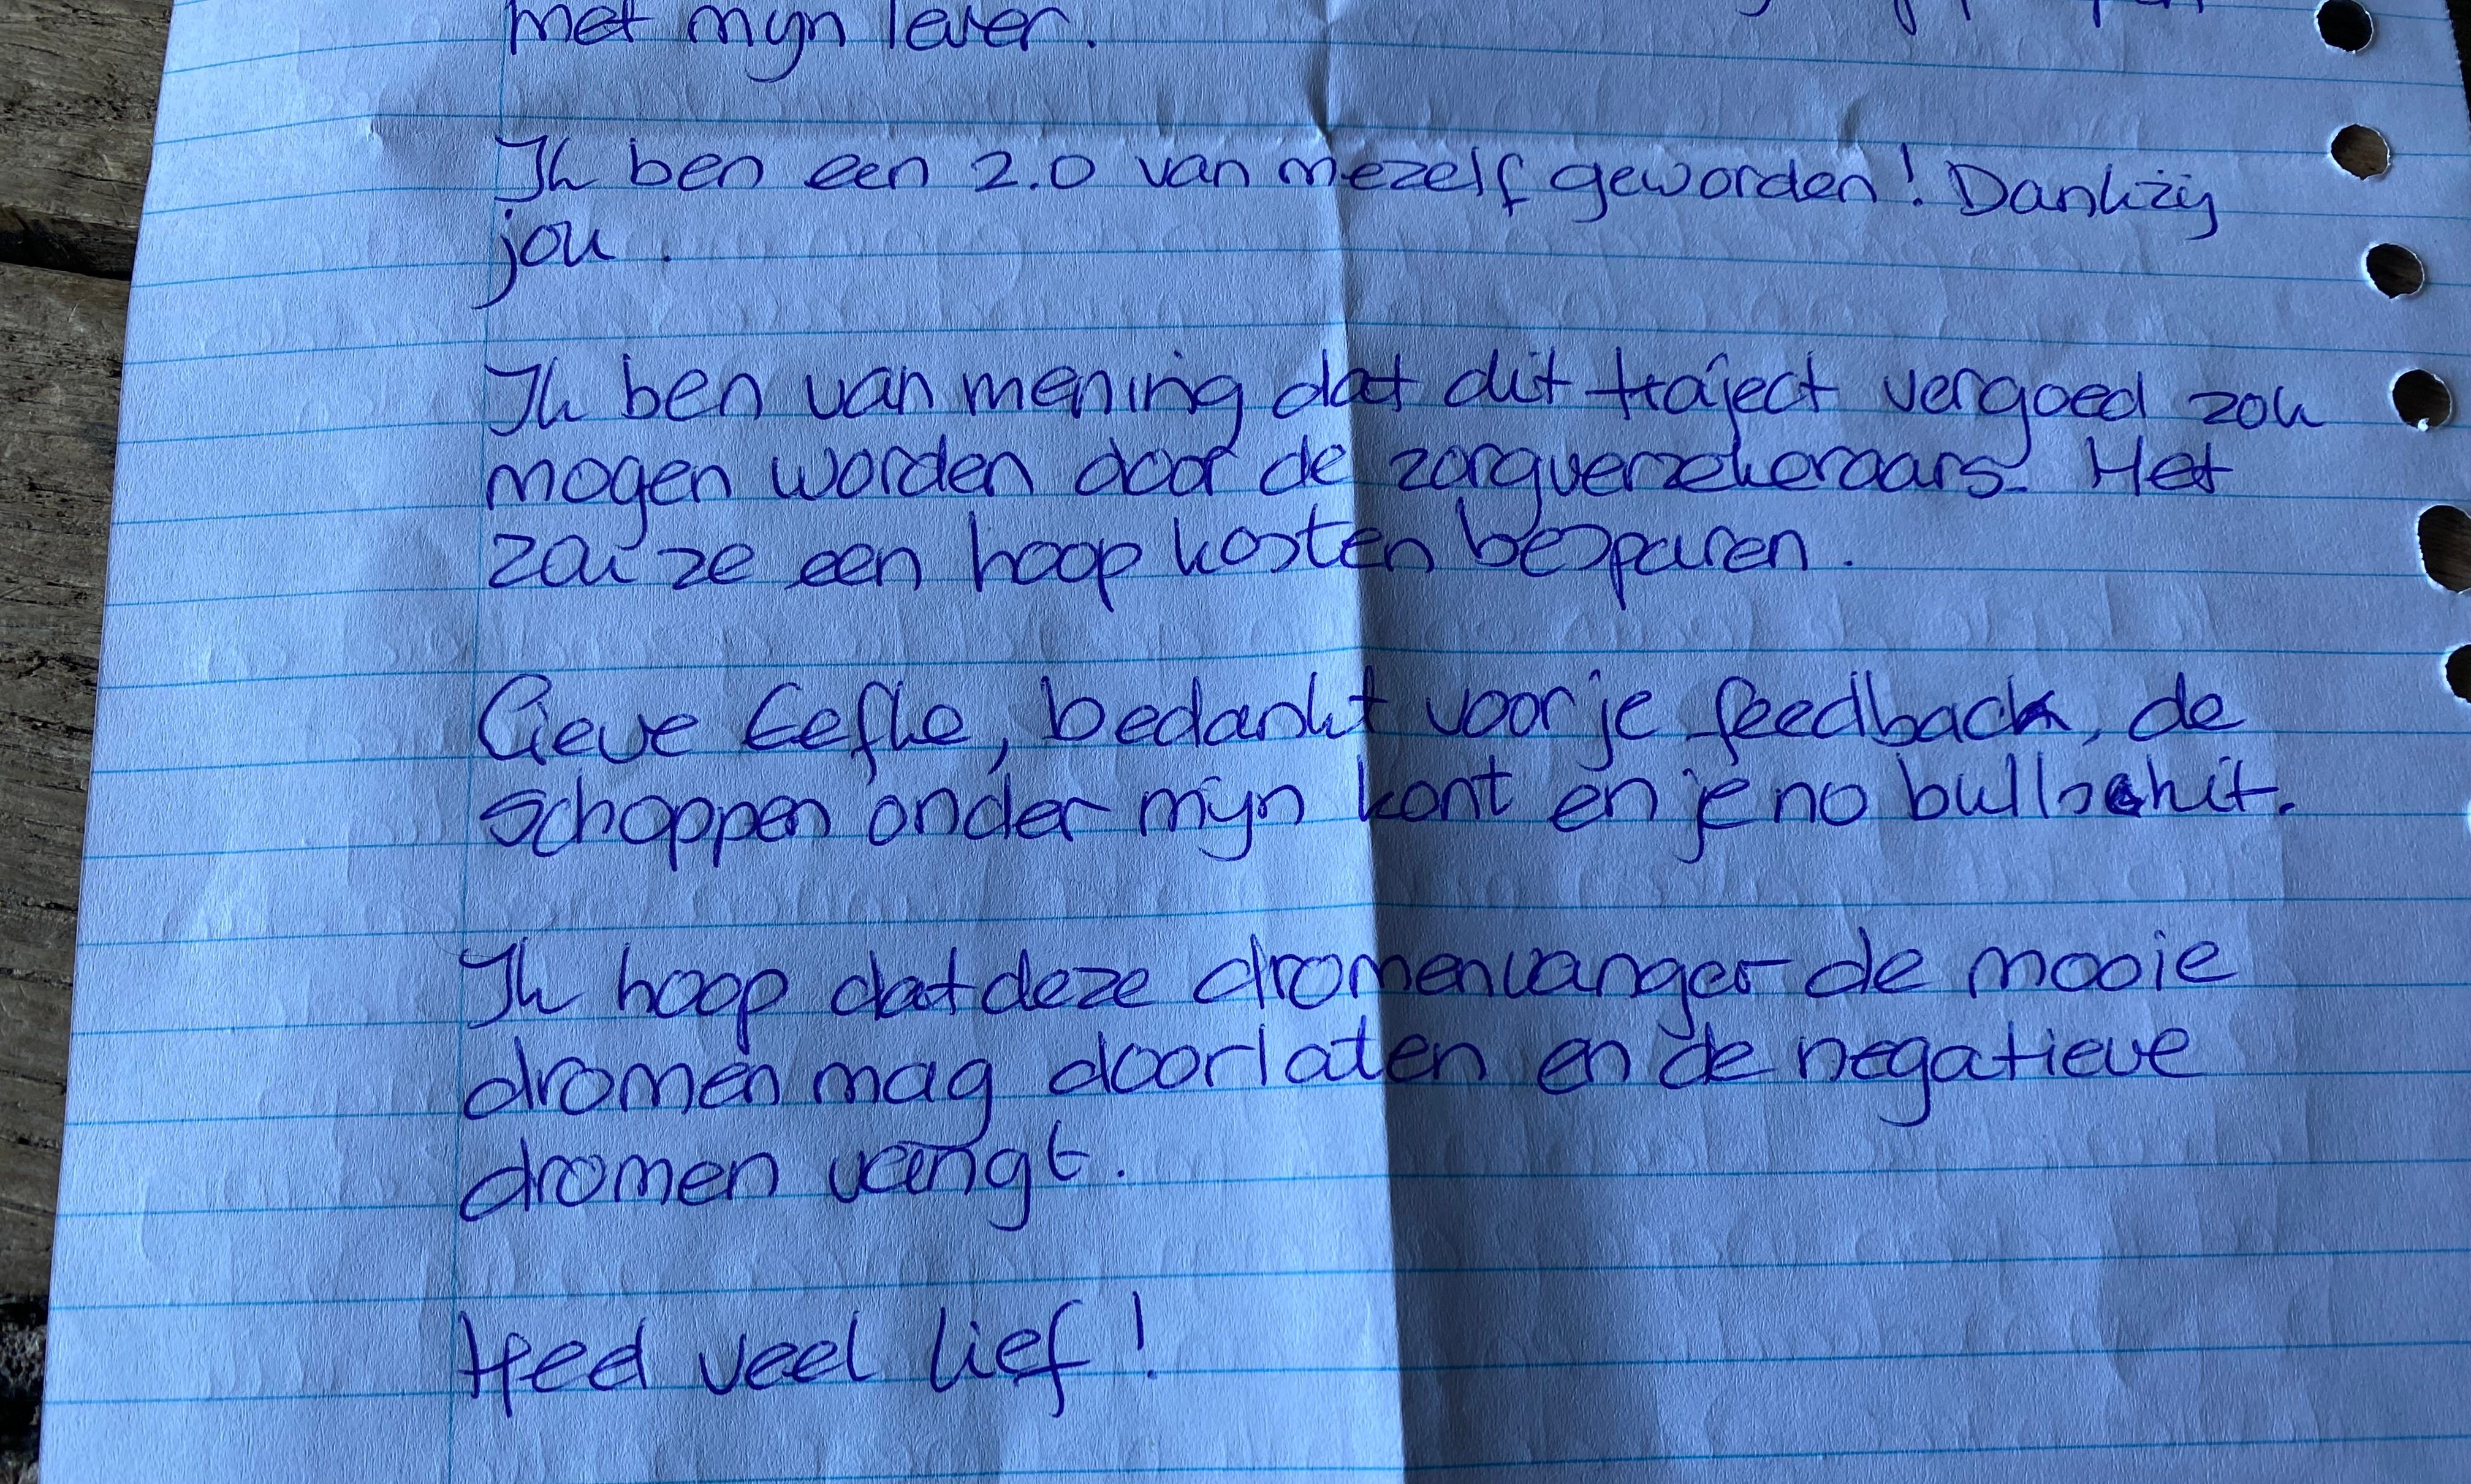 met mijn lever.
Ik ben een 2.0 van mezelf geworden! Dankzij
jou.
Ik ben van mening dat dit traject vergoed zou
mogen worden door de zorgverzekeraars. Het
zou ze een hoop kosten besparen.
Lieve Eefke, bedankt voor je feedback, de
schoppen onder mijn kont en je no bullschit.
Ik hoop dat deze dromenvanger de mooie
dromen mag doorlaten en de negatieve
dromen vangt.
Heel veel lief!